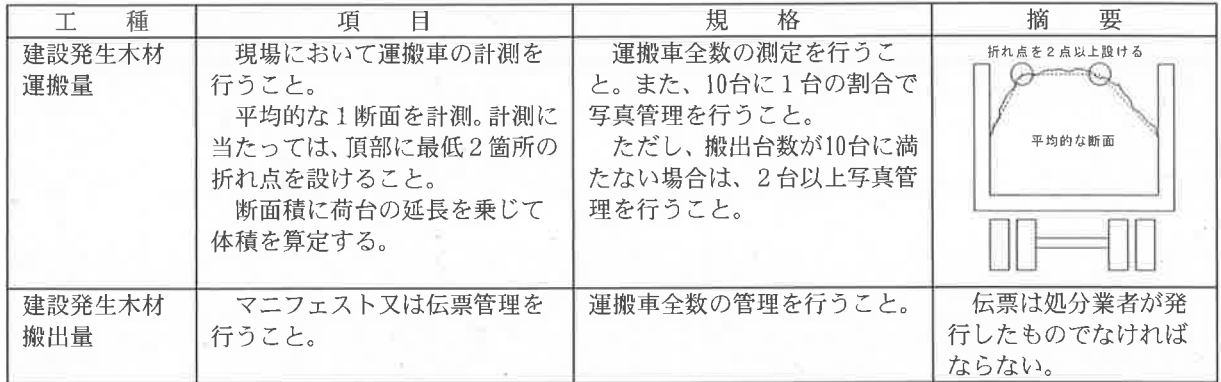 工種 項目 規格 摘要
建設発生木材
運搬量
現場において運搬車の計測を
行うこと。
平均的な１断面を計測。計測に
当たっては、頂部に最低２箇所の
折れ点を設けること。
断面積に荷台の延長を乗じて
体積を算定する。
運搬車全数の測定を行うこ
と。また、10台に１台の割合で
写真管理を行うこと。
ただし、搬出台数が10台に満
たない場合は、２台以上写真管
理を行うこと。
折れ点を２点以上設ける
平均的な断面
建設発生木材
搬出量
マニフェスト又は伝票管理を
行うこと。
運搬車全数の管理を行うこと。
伝票は処分業者が発
行したものでなければ
ならない。